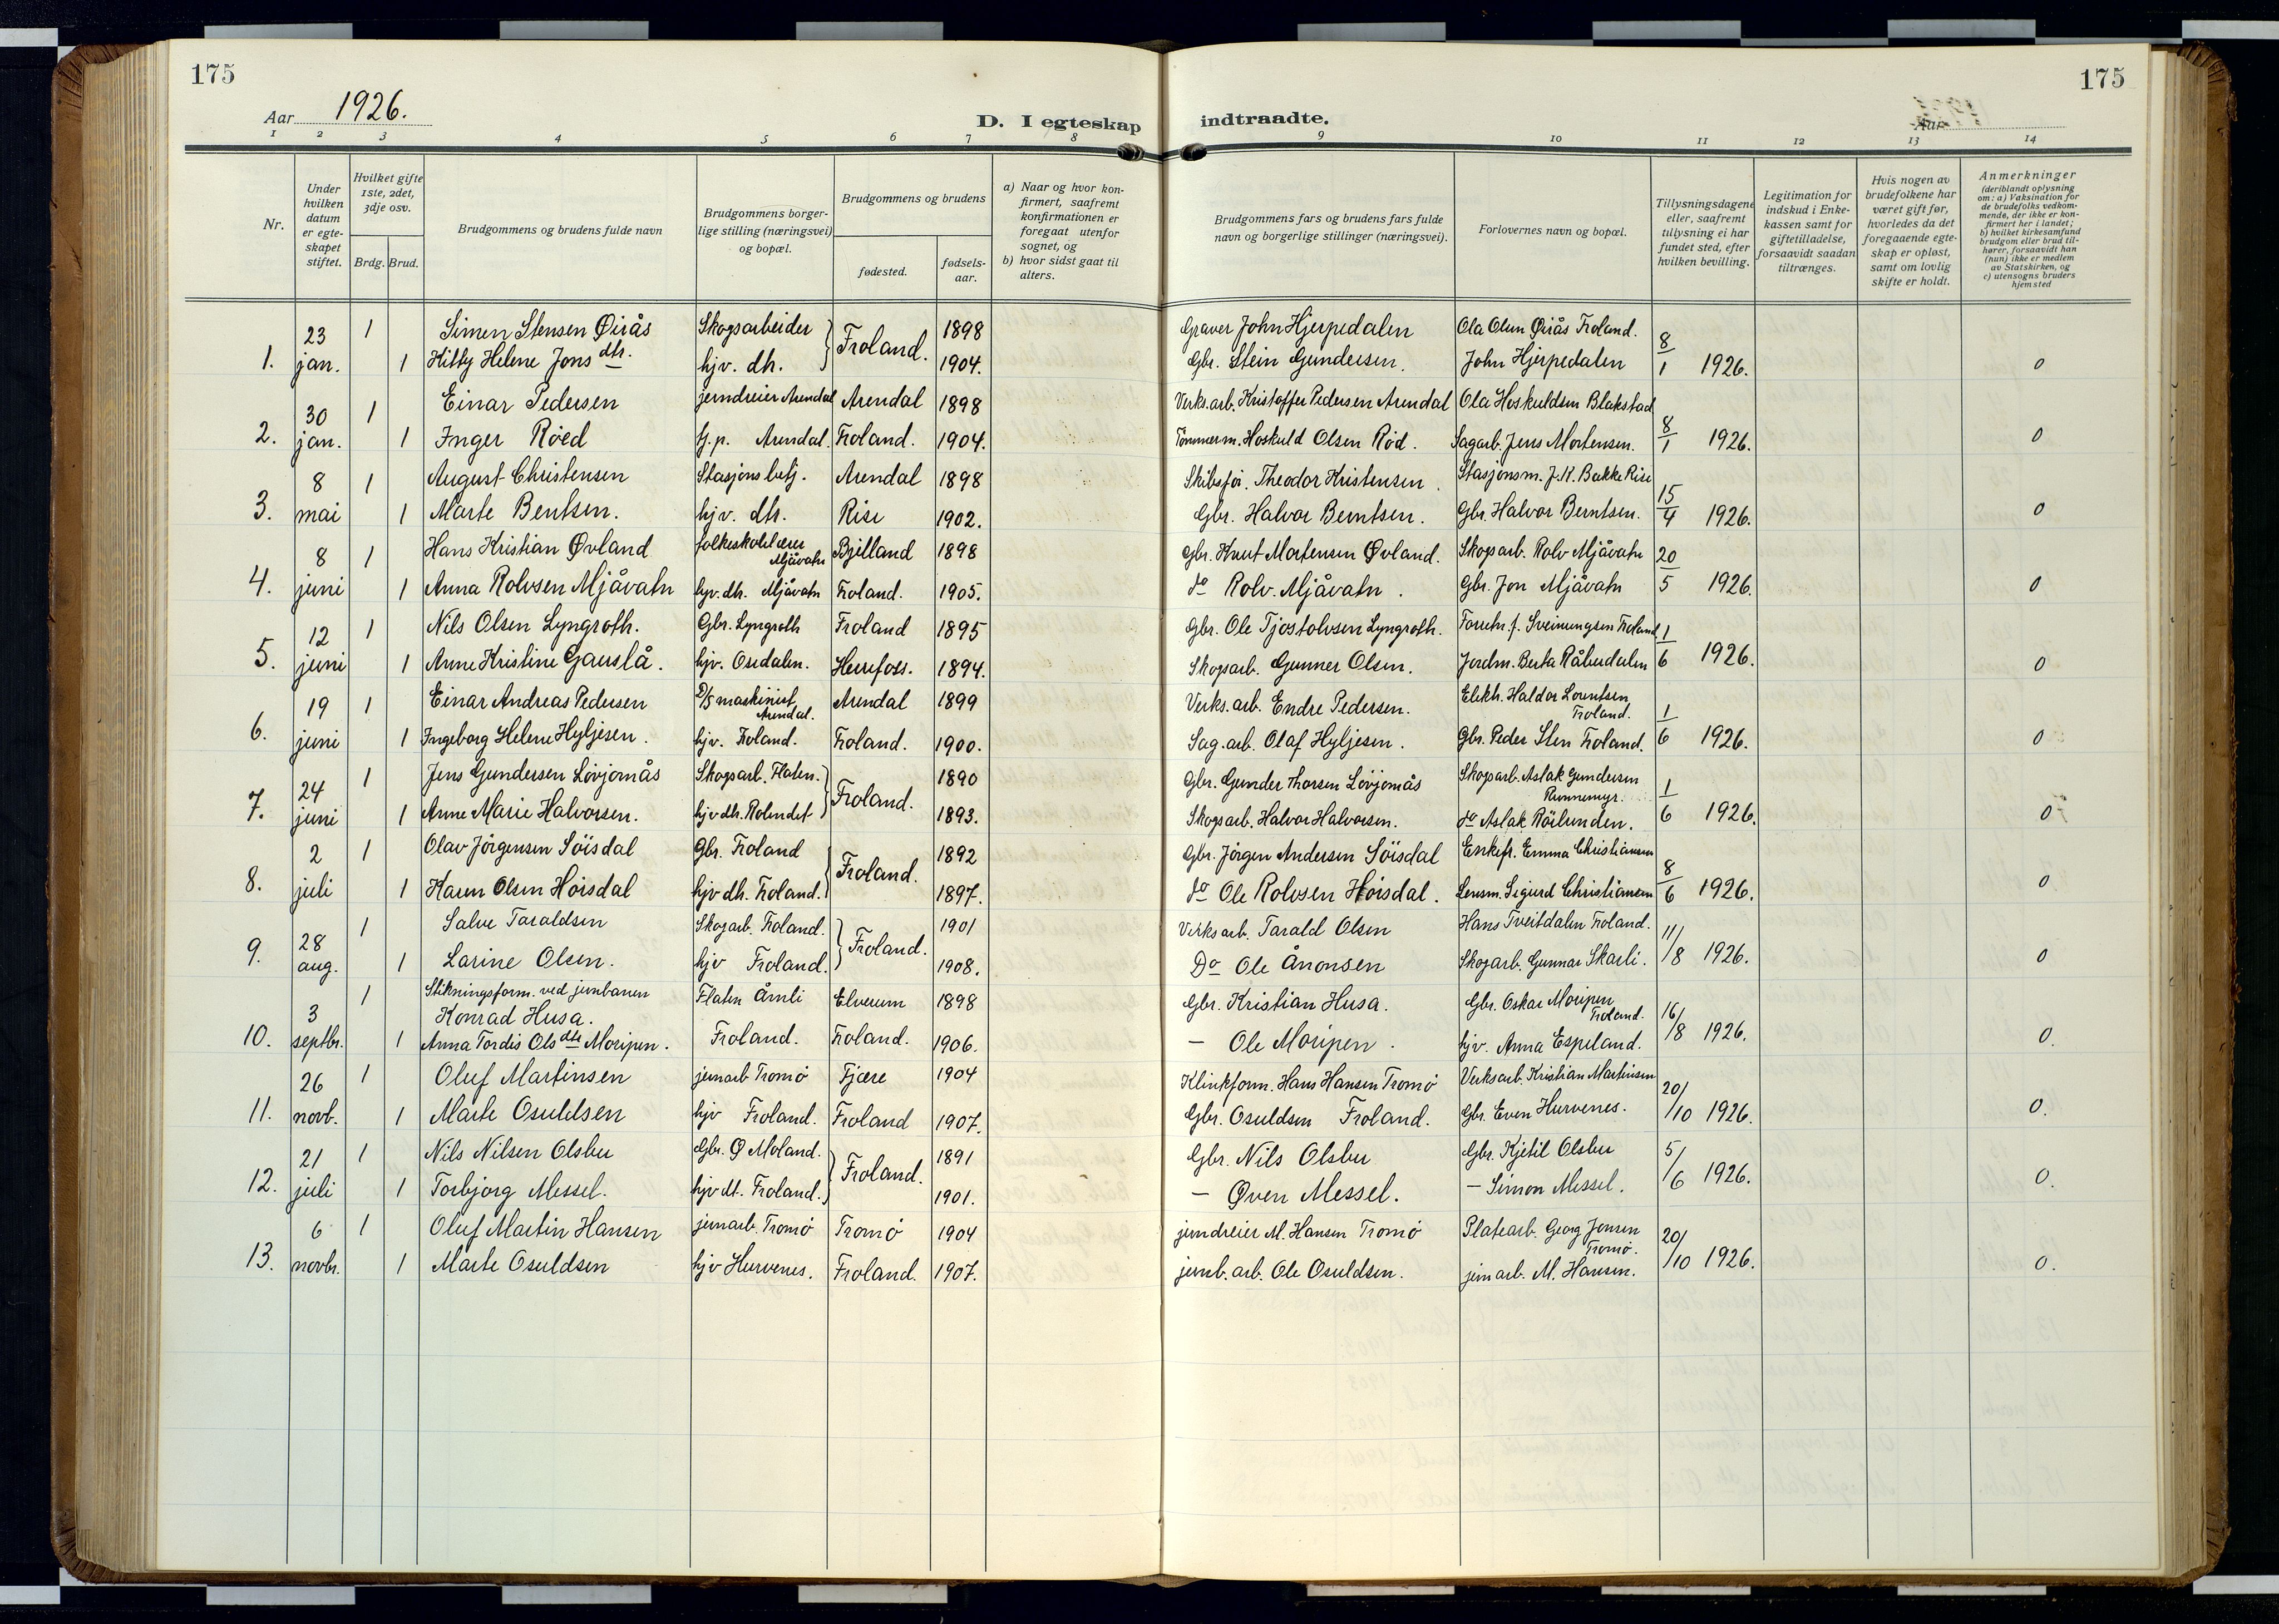 175
175
Aar 1926.
D. I egteskap indtraadte.
Aar
1 2 3 4 5 6 7 8 9 10 11 12 13 14
Nr.
Under hvilken datum er egteskapet stiftet.
Hvilket gifte 1ste, 2det, 3dje osv.
Brdg. Brud.
Brudgommens og brudens fulde navn
Brudgommens borgerlige stilling (næringsvei) og bopæl.
Brudgommens og brudens
fødested.
fødselsaar.
a) Naar og hvor konfirmert, saafremt konfirmationen er foregaat utenfor sognet, og
b) hvor sidst gaat til alters.
Brudgommens fars og brudens fars fulde navn og borgerlige stillinger (næringsvei).
Forlovernes navn og bopæl.
Tillysningsdagene eller, saafremt tillysning ei har fundet sted, efter hvilken bevilling.
Legitimation for indskud i Enkekassen samt for giftetilladelse, forsaavidt saadan tiltrænges.
Hvis nogen av brudefolkene har været gift før, hvorledes da det foregaaende egteskap er opløst, samt om lovlig skifte er holdt.
Anmerkninger (deriblandt oplysning om: a) Vaksination for de brudefolks vedkommende, der ikke er konfirmert her i landet; b) hvilket kirkesamfund brudgom eller brud tilhører, forsaavidt han (hun) ikke er medlem av Statskirken, og c) utensogns bruders hjemsted
23 1 Simen Stensen Øirås Skogsarbeider Froland. 1898 Graver John Hjerpedalen Ola Olsen Øirås Froland. 8
1. jan. 1 Kitty Helene Jons dtr. hjv. dtr. 1904. Gbr. Stein Gundersen. John Hjerpedalen 1 1926. 0
30 1 Einar Pedersen jerndreier Arendal Arendal 1898 Verks.arb. Kristoffer Pedersen Arendal Ola Hoskuldsen Blakstad 8
2. jan. 1 Inger Röed tj.p. Arendal. Froland. 1904. Tömmerm. Hoskuld Olsen Röd. Sagarb. Jens Mortensen. 1 1926. 0
8 1 August Christensen Stasjons betj. Arendal 1898 Skibsför. Theodor Kristensen. Stasjonsm. J.K. Bakke Rise 15
3. mai 1 Marte Bentsen. hjv. dtr. Rise 1902. Gbr. Halvor Berntsen. Gbr. Halvor Berntsen. 4 1926. 0
8 1 Hans Kristian Øvland folkeskolelærer Mjåvatn Bjelland 1898 Gbr. Knut Mortensen Øvland. Skogsarb. Rolv Mjåvatn 20
4. juni 1 Anna Rolvsen Mjåvatn hjv. dtr. Mjåvatn Froland. 1905. do Rolv Mjåvatn. Gbr. Jon Mjåvatn 5 1926. 0
12 1 Nils Olsen Lyngroth. Gbr. Lyngroth Froland 1895 Gbr. Ole Tjostolvsen Lyngroth. Forretn.f. Sveinungsen Froland 1
5. juni 1 Anne Kristine Gauslå. hjv. Osedalen. Herefoss. 1894. Skogsarb. Gunner Olsen. Jordm. Berta Råbudalen 6 1926. 0
19 1 Einar Andreas Pedersen D/S maskinist Arendal. Arendal 1899 Verks.arb. Endre Pedersen. Elektr. Haldor Lorentsen Froland. 1
6. juni 1 Ingeborg Helene Hyljesen. hjv. Froland. Froland. 1900. Sag.arb. Olaf Hyljesen. Gbr. Peder Sten Froland. 6 1926. 0
24 1 Jens Gundersen Lövjomås Skogsarb. Flaten. Froland. 1890 Gbr. Gunder Thorsen Lövjomås Skogsarb. Aslak Gundersen Runnemyr. 1
7. juni 1 Anne Marie Halvorsen. hjv dtr. Rolundet 1893. Skogsarb. Halvor Halvorsen. do Aslak Rörlunden. 6 1926. 0
2 1 Olav Jörgensen Söisdal Gbr. Froland Froland. 1892 Gbr. Jörgen Andersen Söisdal Enkefr. Emma Christiansen 8
8. juli 1 Karen Olsen Höisdal hjv dtr. Froland. 1897. do Ole Rolvsen Höisdal. Lensm. Sigurd Christiansen 6 1926. 0
28 1 Salve Taraldsen Skogarb. Froland. Froland. 1901 Verksarb. Tarald Olsen Hans Tveitdalen Froland. 11/
9. aug. 1 Larine Olsen. hjv Froland. 1908. Do Ole Ånonsen Skogarb. Gunnar Skarli. /8 1926. 0
3 1 Stikningsform. ved jernbanen Flaten Åmli Elverum 1898 Gbr. Kristian Husa. Gbr. Oskar Moripen Froland. 16/
Konrad Husa.
10. septbr. 1 Anna Tordis Ols dtr Moripen. Froland. Froland. 1906. — Ole Moripen. hjv. Anna Espeland. /8 1926. 0.
26 1 Oluf Martinsen jernarb Tromö Fjære 1904 Klinkform. Hans Hansen Tromö Verksarb. Kristian Martinsen 20/
11. novb. 1 Marte Osuldsen hjv Froland. Froland 1907. Gbr. Osuldsen Froland. Gbr. Even Hurvenes. /10 1926. 0.
21 1 Nils Nilsen Olsbu Gbr. Ø Moland. Froland. 1891 Gbr. Nils Olsbu Gbr. Kjetil Olsbu 5/
12. juli 1 Torbjorg Messel. hjv dt. Froland. 1901. — Øven Messel. — Simon Messel. /6 1926. 0.
6 1 Oluf Martin Hansen jernarb. Tromö Tromö 1904 jerndreier M. Hansen Tromö Platearb. Georg Jensen Tromö. 20/
13. novbr. 1 Marte Osuldsen hjv Hurvenes. Froland. 1907. jernb.arb. Ole Osuldsen. jernarb. M. Hansen. /10 1926. 0.